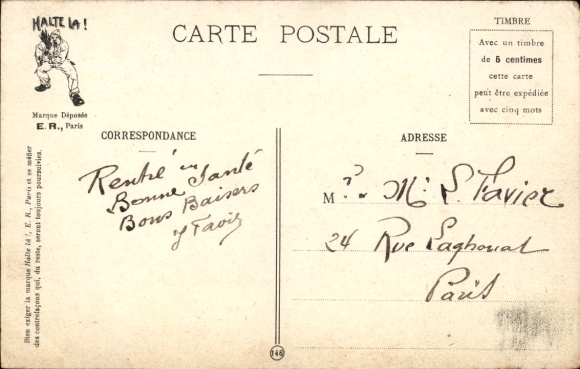 HALTE LA!
Marque Déposée
E. R., Paris
CARTE POSTALE
TIMBRE
Avec un timbre
de 5 centimes
cette carte
peut être expédiée
avec cinq mots
CORRESPONDANCE
Rentré en
Bonne Santé
Bons Baisers
ADRESSE
M
Favier
24 Rue Laghouat
Paris
Bien exiger la marque Halte là!, E. R., Paris et se méfier
des contrefaçons qui, du reste, seront toujours poursuivies.
146